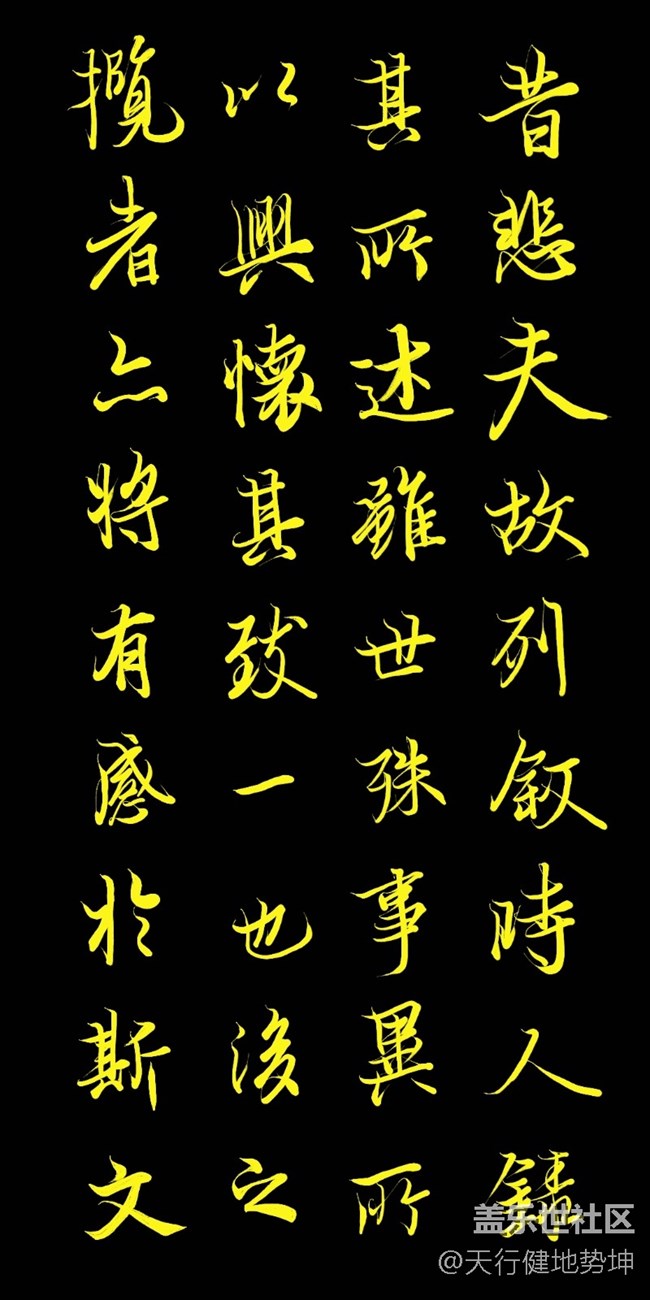 昔悲夫故列叙時人錄
其所述雖世殊事異所
以興懷其致一也後之
攬者亦將有感於斯文
盖乐世社区
@天行健地势坤